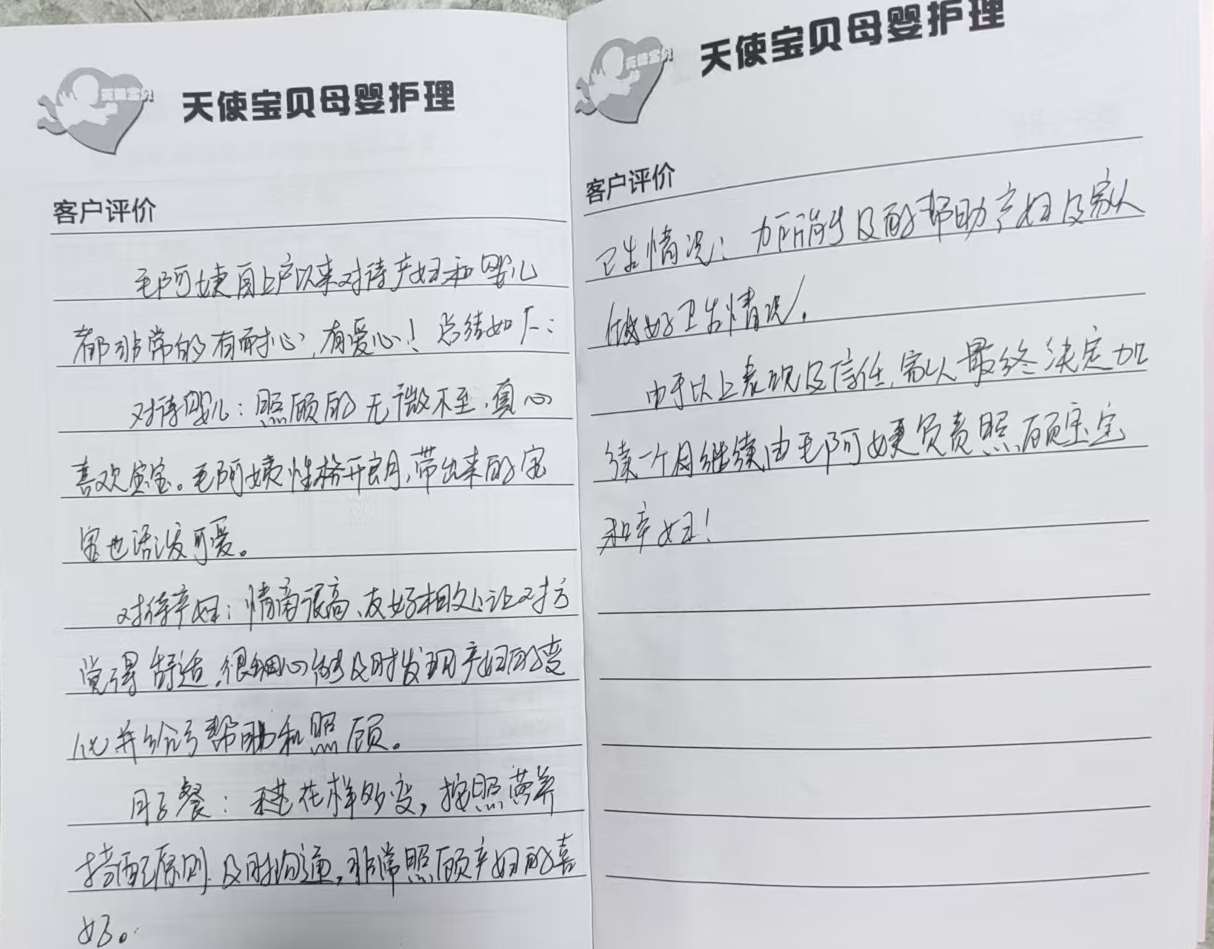 天使宝贝
天使宝贝母婴护理
客户评价
毛阿姨自上户以来对待产妇和婴儿
都非常的有耐心，有爱心！总结如下：
对待婴儿：照顾的无微不至，真心
喜欢宝宝。毛阿姨性格开朗，带出来的宝
宝也活泼可爱。
对待产妇：情商很高、友好相处让对方
觉得舒适，很细心能及时发现产妇的变
化并给予帮助和照顾。
月子餐：花样多变，按照营养
搭配原则，及时沟通，非常照顾产妇的喜
好。
天使宝贝
天使宝贝母婴护理
客户评价
卫生情况：力所能及的帮助产妇及家人
做好卫生情况！
由于以上表现及信任，家人最终决定加
续一个月继续由毛阿姨负责照顾宝宝
和产妇！